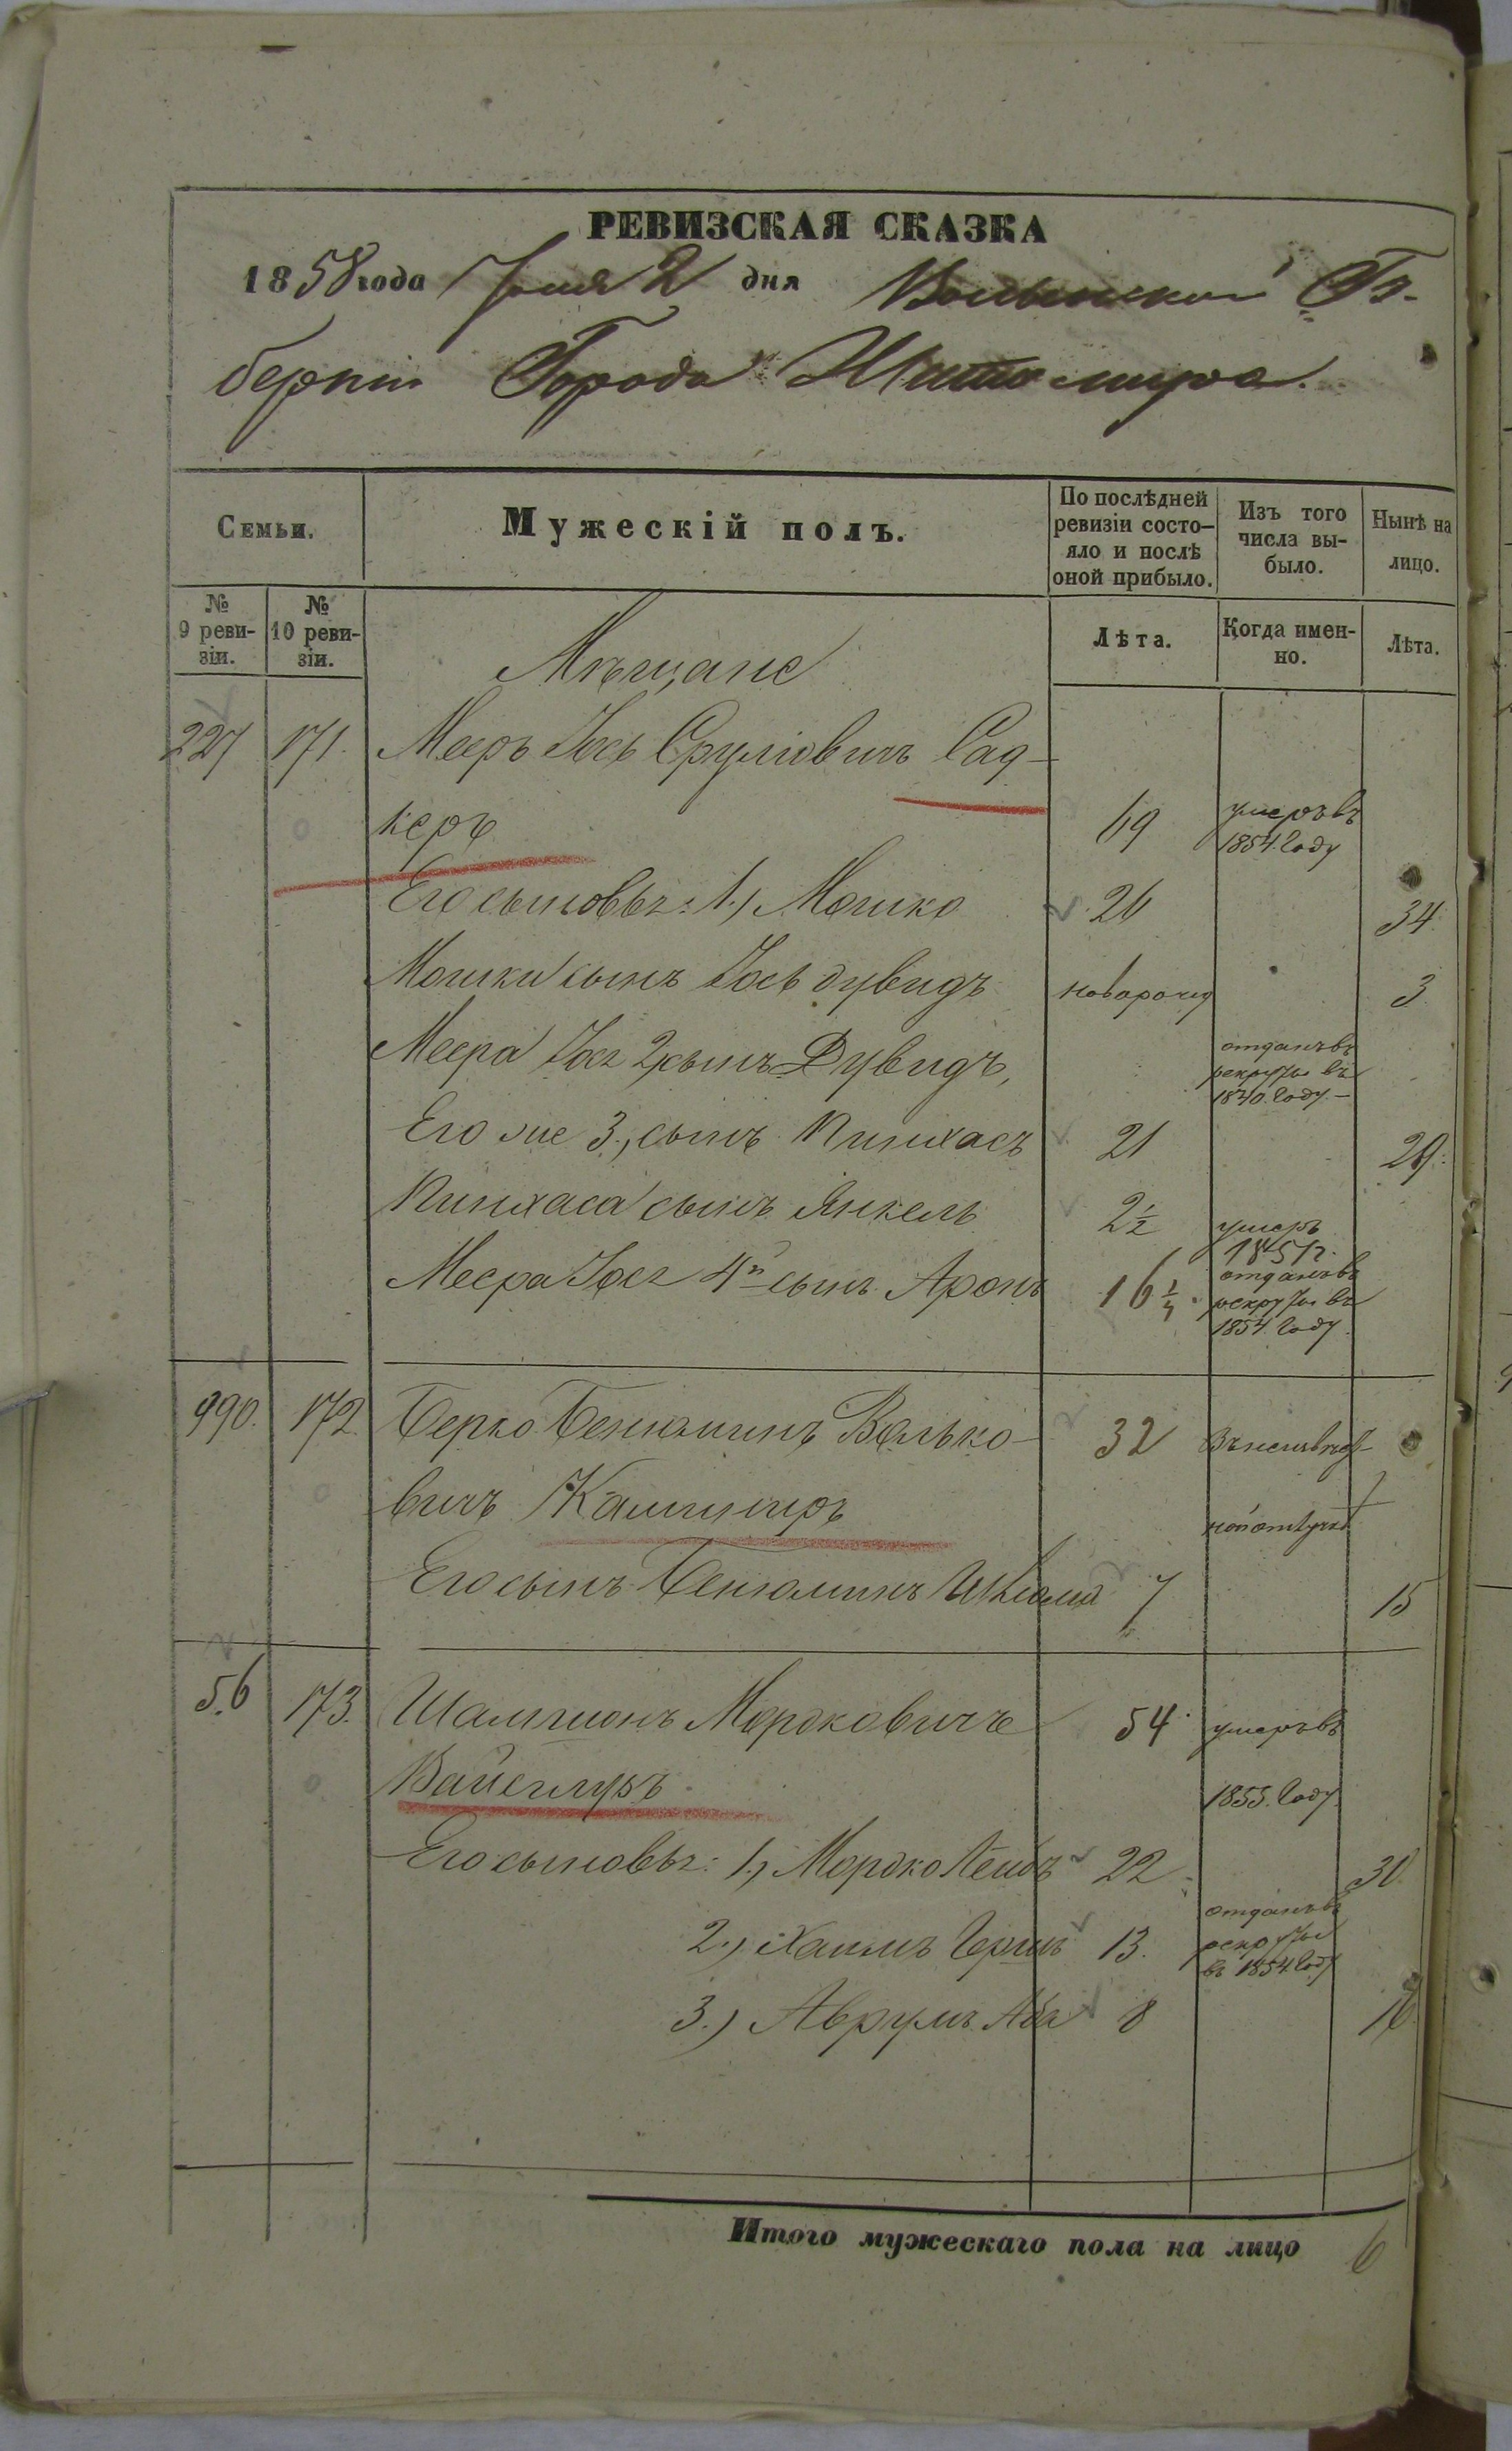 РЕВИЗСКАЯ СКАЗКА
1858 года Іюня 2 дня Волынской Гу-
берніи Города Житомира.
Семьи.
Мужескій полъ.
По послѣдней ревизіи состо-
яло и послѣ оной прибыло.
Изъ того числа вы-
было.
Нынѣ на лицо.
№ 9 реви-
зіи.
№ 10 реви-
зіи.
Лѣта.
Когда имен-
но.
Лѣта.
Мѣщане
227 171. Мееръ Іось Сруліовичъ Сад-
керъ 69 умеръ въ 1854 году
Его сыновья: 1.) Мошко 26 34
Мошки сынъ Іось Дувидъ 3
Меера Іося 2 сынъ Дувидъ, отданъ въ рекруты въ 1840 году
Его же 3., сынъ Пинхасъ 21 29.
Пинхаса сынъ Янкель 2½ умеръ
Меера Іося 4й сынъ Аронъ 16¼ отданъ въ рекруты въ 1854 году.
990. 172. Берко Бенюминъ Валько- 32
вичъ Камиширъ
Его сынъ Бенюминъ 7 15
56 173. Шамшонъ Мордковичъ 54 умеръ въ
1855. году.
Его сыновья: 1.) Мордко Лейбъ 22 30.
2.) Хаимъ Гершъ 13. отданъ въ рекруты въ 1854 году
3.) Аврумъ Аба 8 16.
Итого мужескаго пола на лицо 6